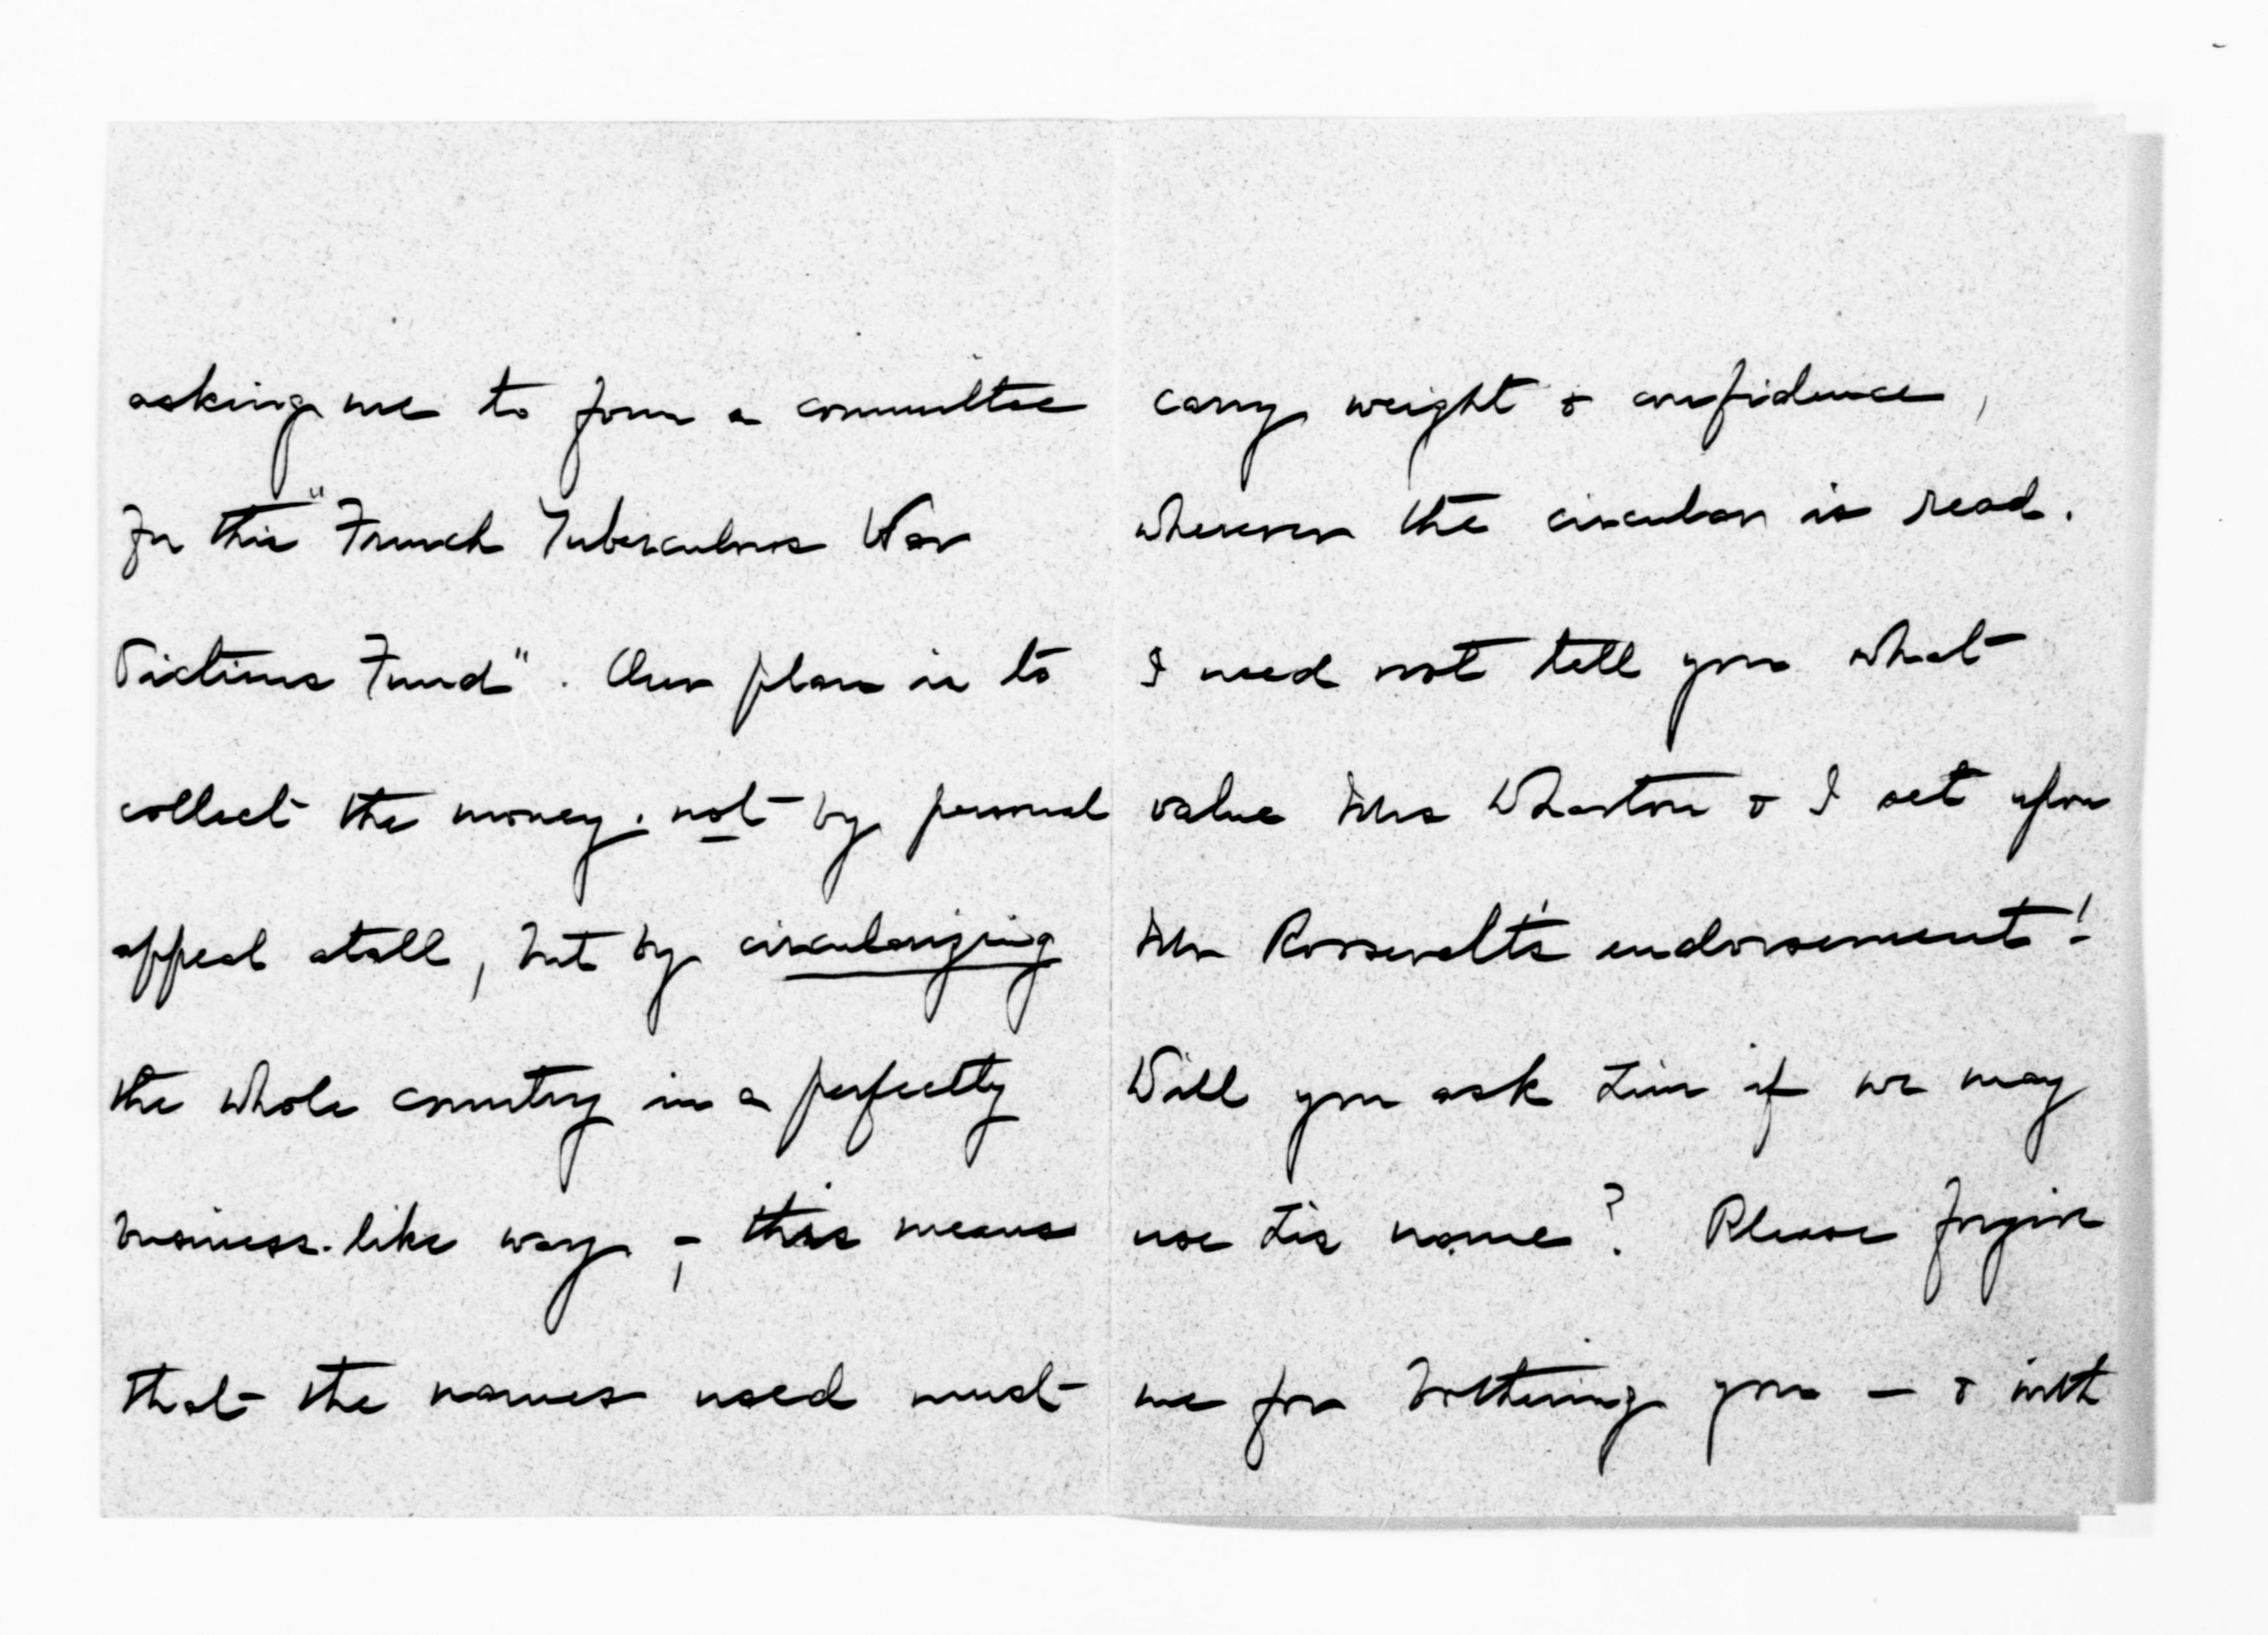 asking me to form a committee
for this "French Tuberculous War
Victims Fund". Our plan is to
collect the money, not by personal
appeal atall, but by circularizing
the whole country in a perfectly
business-like way, - this means
that the names used must
carry weight & confidence,
wherever the circular is read.
I need not tell you what
value Mrs Wharton & I set upon
Mr Roosevelt's endorsement!
Will you ask him if we may
use his name? Please forgive
me for bothering you - & with